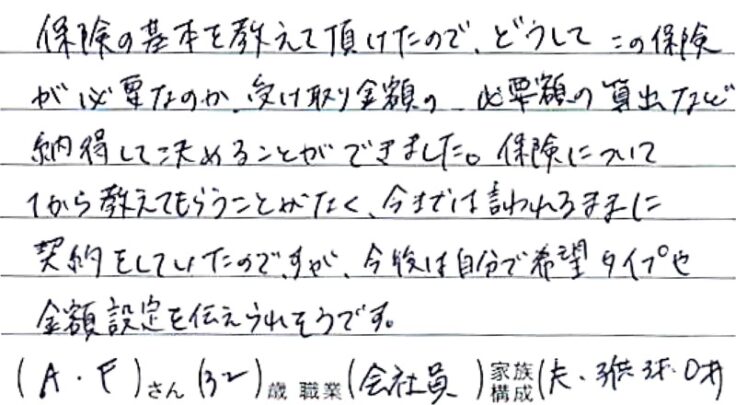 保険の基本を教えて頂けたので、どうしてこの保険
が必要なのか、受け取り金額の、必要額の算出など
納得して決めることができました。保険について
1から教えてもらうことがなく、今までは言われるままに
契約をしていたのですが、今後は自分で希望タイプや
金額設定を伝えられそうです。
(A・F)さん(32)歳 職業(会社員)家族構成(夫・子供3才・0才)